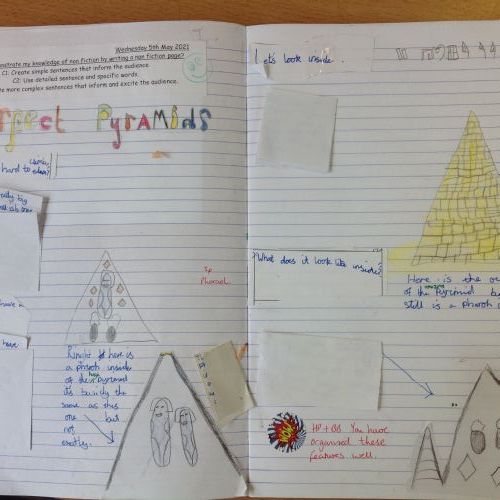 Wednesday 5th May 2021
nstrate my knowledge of non fiction by writing a non fiction page?
C1: Create simple sentences that inform the audience.
C2: Use detailed sentence and specific words.
te more complex sentences that inform and excite the audience.
rfect PyraMids
hard to
really big
have a
have
Sp
Pharoah
Rinight here is
a pharoh inside
of the huge Pyramid
its basicly the
same as this
one but
not
exactly.
Let's look inside.
What does it look like inside?
Here is the
of the Pyramid bu
still is a pharoh
WOW
HP + BB You have
organised these
features well.